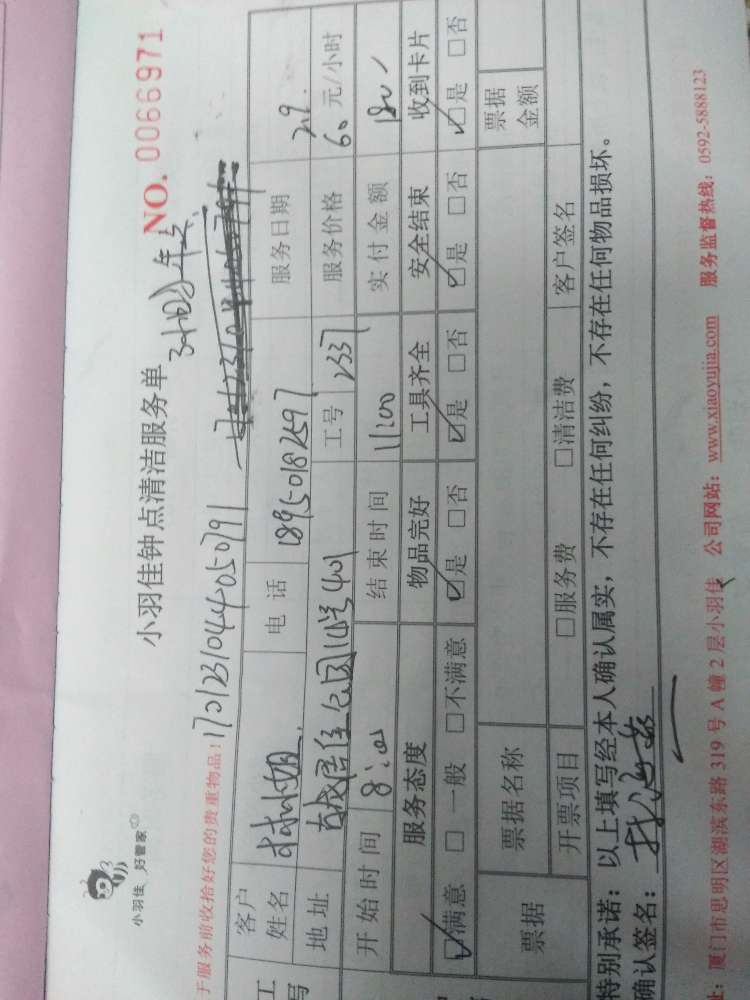 小羽佳 好管家
小羽佳钟点清洁服务单
NO. 0066971
于服务前收拾好您的贵重物品！17012310444050791
客户姓名 电话 18950182597 服务日期 2.9.
地址 工号 2337 服务价格 60 元/小时
开始时间 8:00 结束时间 11:00 实付金额 180
服务态度 物品完好 工具齐全 安全结束 收到卡片
☑满意 □一般 □不满意 ☑是 □否 ☑是 □否 ☑是 □否 ☑是 □否
票据 票据名称 票据金额
开票项目 □服务费 □清洁费 客户签名
特别承诺：以上填写经本人确认属实，不存在任何纠纷，不存在任何物品损坏。
确认签名：
址：厦门市思明区湖滨东路 319 号 A 幢 2 层小羽佳 公司网站：www.xiaoyujia.com 服务监督热线：0592-5888123